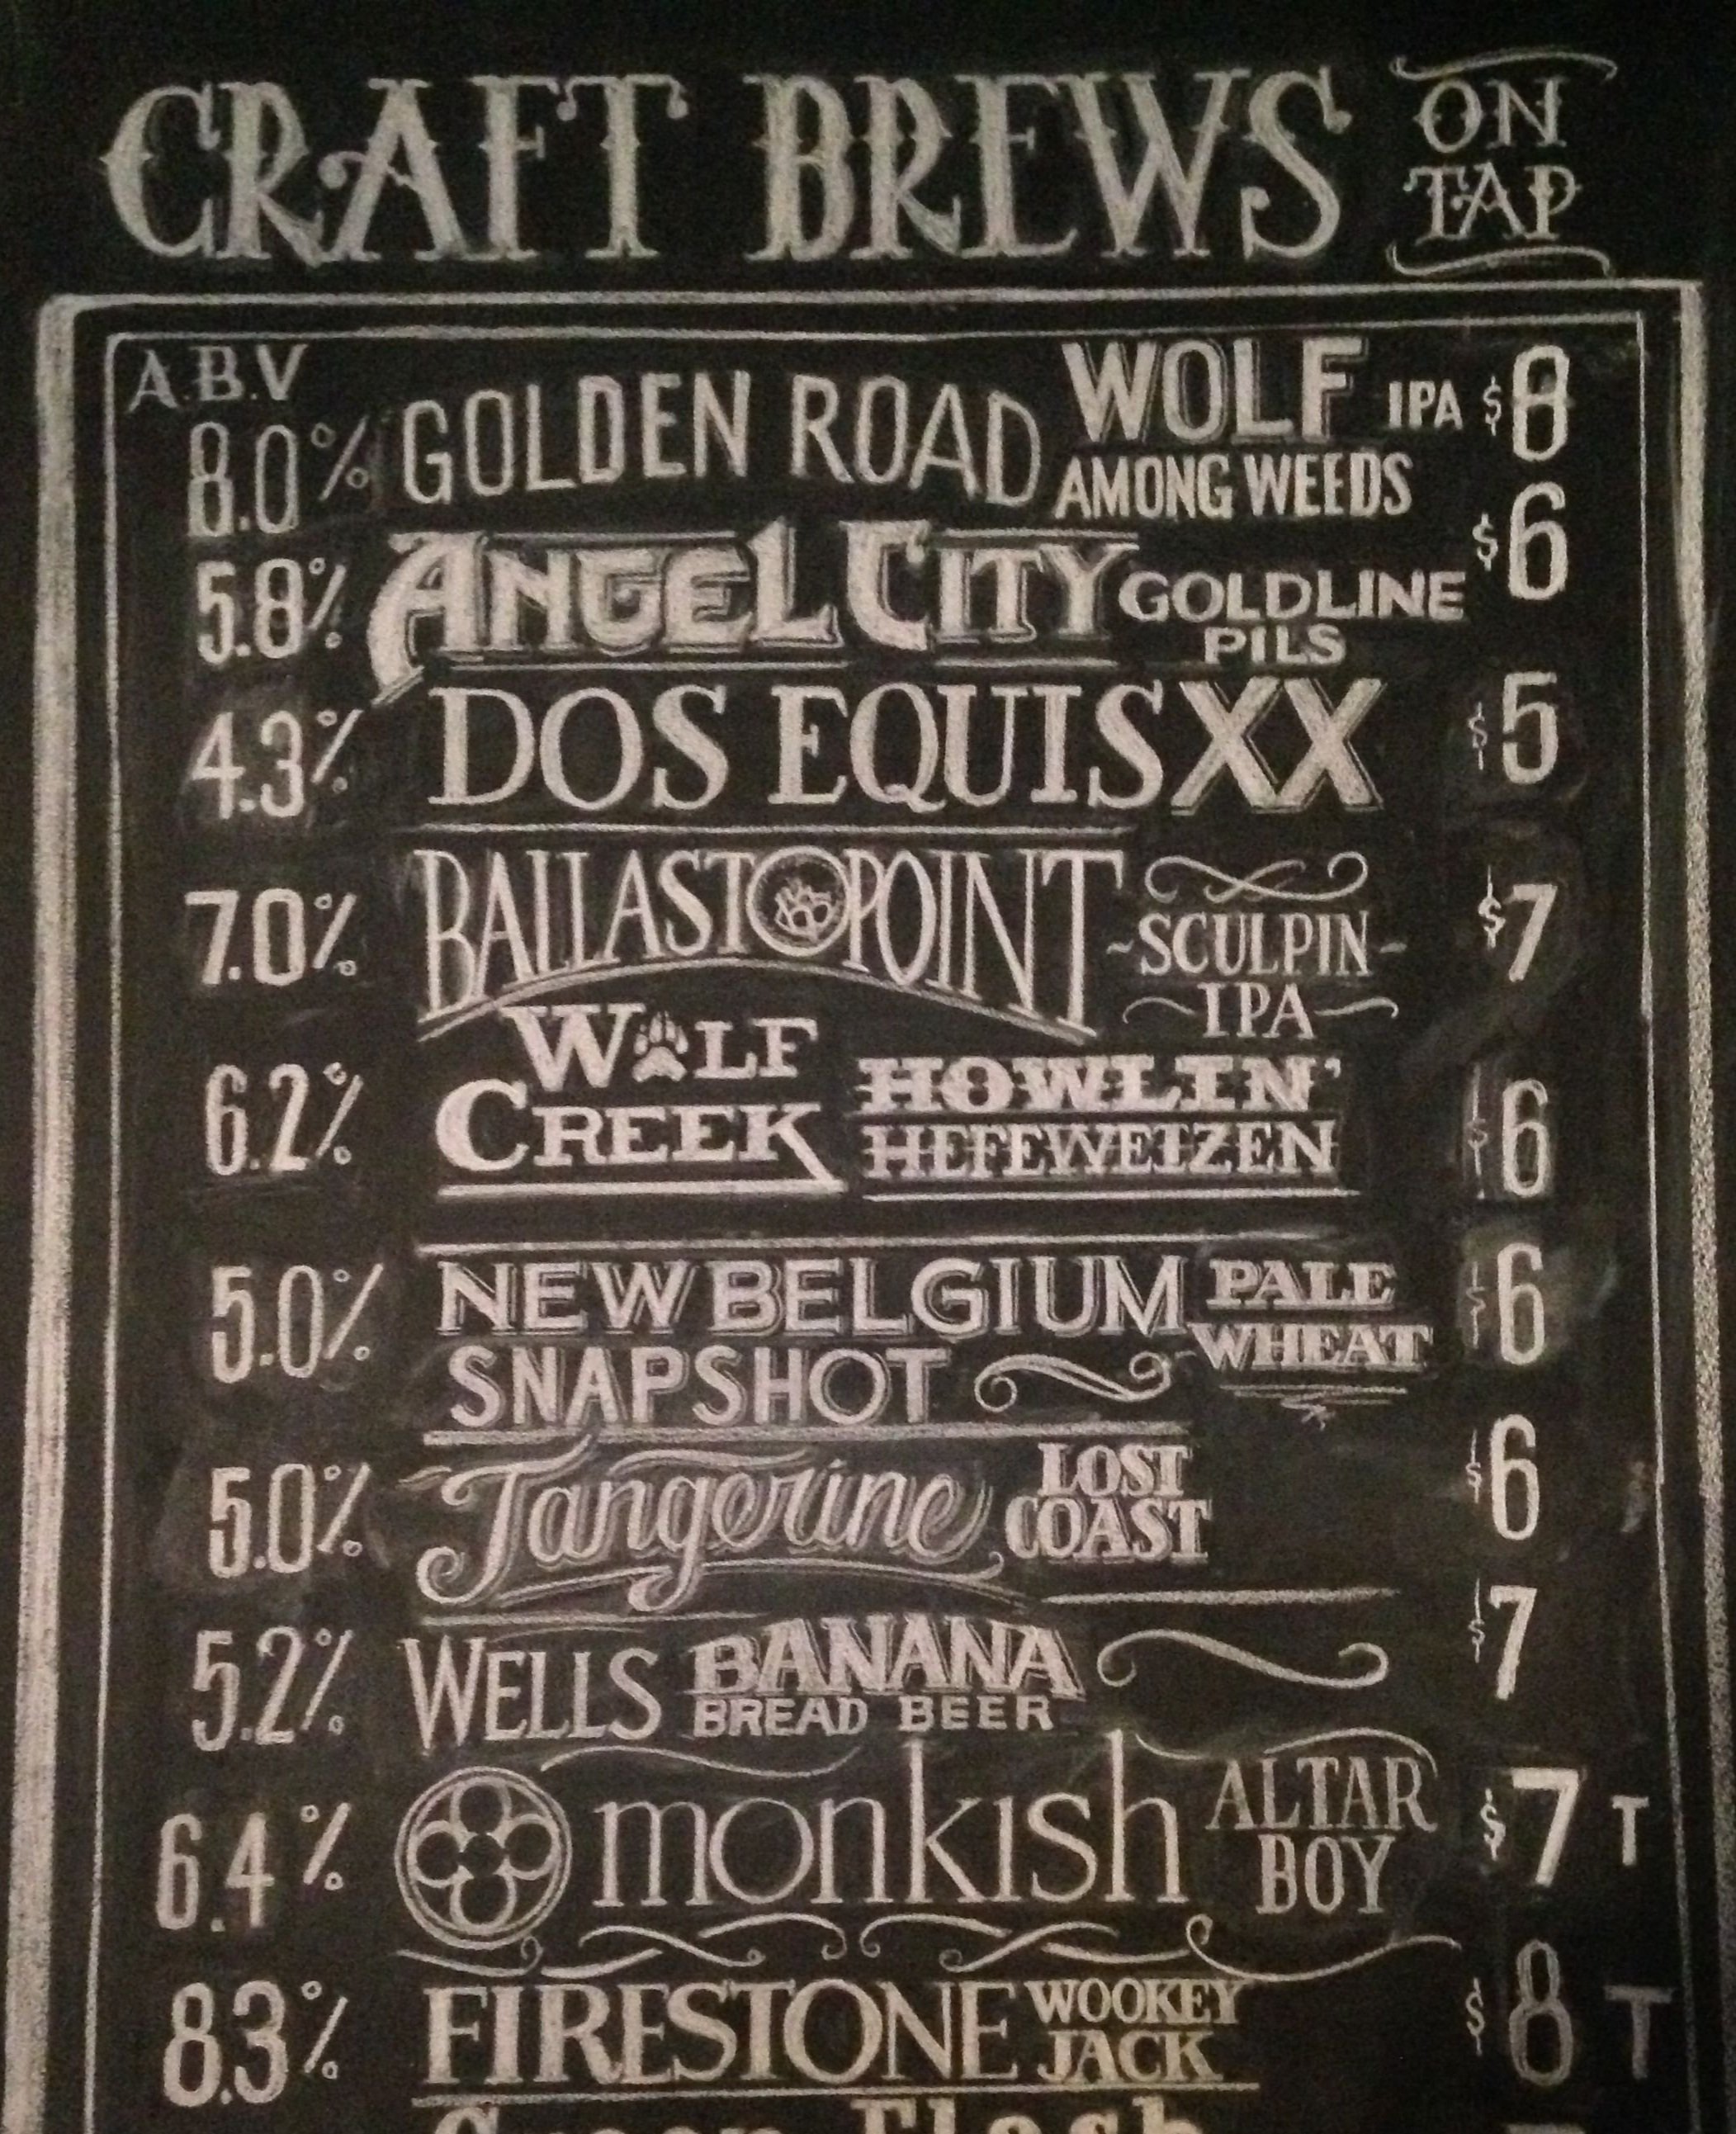 CRAFT BREWS ON TAP
A.B.V
8.0% GOLDEN ROAD WOLF AMONG WEEDS IPA $8
5.8% ANGEL CITY GOLDLINE PILS $6
4.3% DOS EQUIS XX $5
7.0% BALLAST POINT -SCULPIN- IPA $7
6.2% WOLF CREEK HOWLIN' HEFEWEIZEN $6
5.0% NEW BELGIUM SNAPSHOT PALE WHEAT $6
5.0% Tangerine LOST COAST $6
5.2% WELLS BANANA BREAD BEER $7
6.4% monkish ALTAR BOY $7 T
8.3% FIRESTONE WOOKEY JACK $8 T
Green Flash